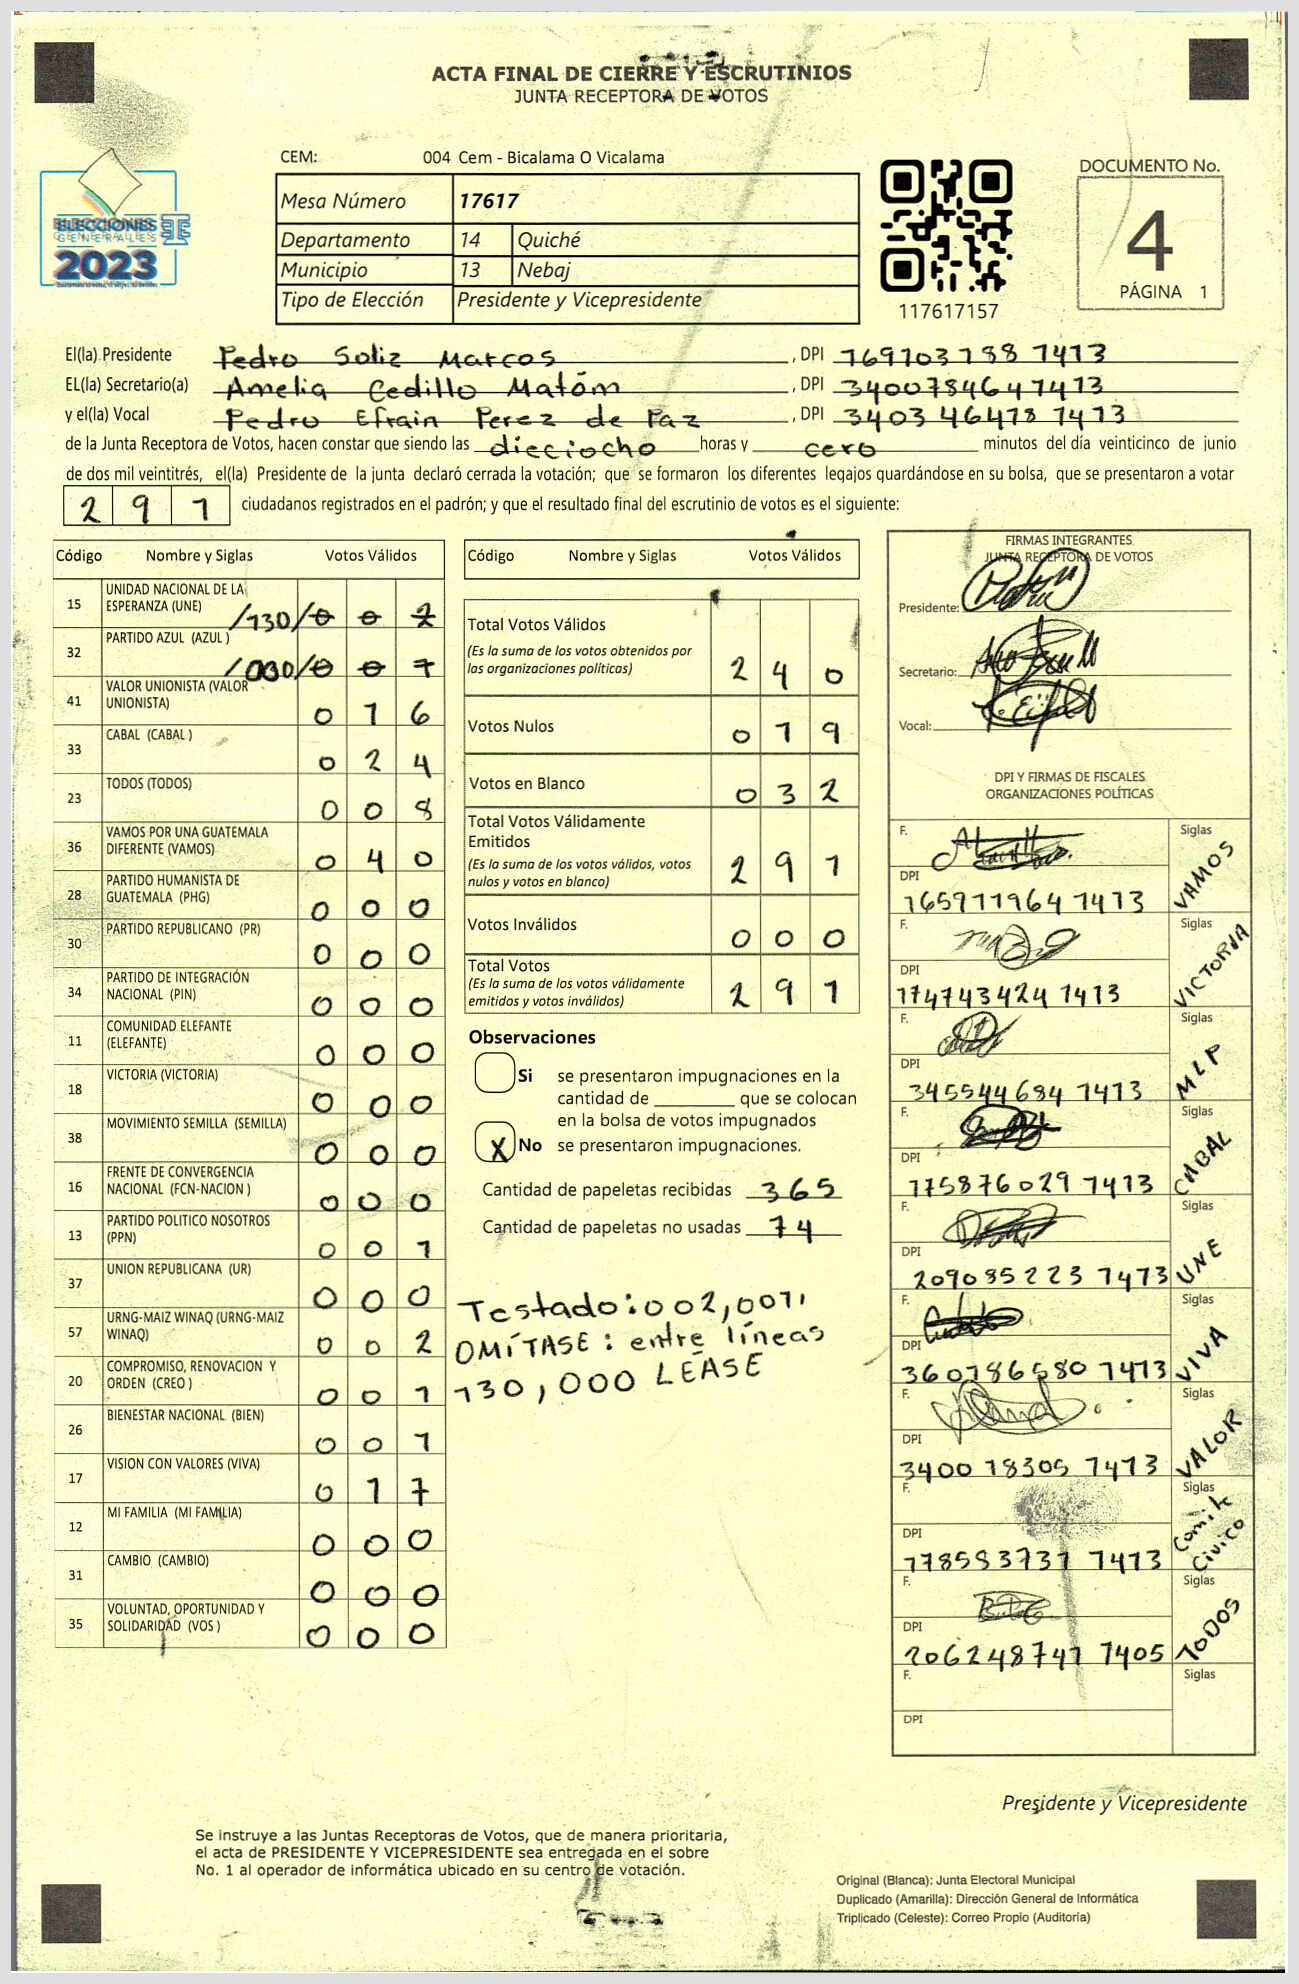 ACTA FINAL DE CIERRE Y ESCRUTINIOS
JUNTA RECEPTORA DE VOTOS
CEM: 004 Cem - Bicalama O Vicalama
Mesa Número 17617
Departamento 14 Quiché
Municipio 13 Nebaj
Tipo de Elección Presidente y Vicepresidente
ELECCIONES
GENERALES
2023
117617157
DOCUMENTO No.
4
PÁGINA 1
El(la) Presidente Pedro Soliz Marcos, DPI 169103188 1413
EL(la) Secretario(a) Amelia Cedillo Matóm, DPI 340078464 1413
y el(la) Vocal Pedro Efrain Perez de Paz, DPI 3403 46418 1413
de la Junta Receptora de Votos, hacen constar que siendo las dieciocho horas y cero minutos del día veinticinco de junio
de dos mil veintitrés, el(la) Presidente de la junta declaró cerrada la votación; que se formaron los diferentes legajos guardándose en su bolsa, que se presentaron a votar
291 ciudadanos registrados en el padrón; y que el resultado final del escrutinio de votos es el siguiente:
Código Nombre y Siglas Votos Válidos
15 UNIDAD NACIONAL DE LA ESPERANZA (UNE) /130/ 0 0 2
32 PARTIDO AZUL (AZUL ) /000/ 0 0 1
41 VALOR UNIONISTA (VALOR UNIONISTA) 0 1 6
33 CABAL (CABAL ) 0 2 4
23 TODOS (TODOS) 0 0 8
36 VAMOS POR UNA GUATEMALA DIFERENTE (VAMOS) 0 4 0
28 PARTIDO HUMANISTA DE GUATEMALA (PHG) 0 0 0
30 PARTIDO REPUBLICANO (PR) 0 0 0
34 PARTIDO DE INTEGRACIÓN NACIONAL (PIN) 0 0 0
11 COMUNIDAD ELEFANTE (ELEFANTE) 0 0 0
18 VICTORIA (VICTORIA) 0 0 0
38 MOVIMIENTO SEMILLA (SEMILLA) 0 0 0
16 FRENTE DE CONVERGENCIA NACIONAL (FCN-NACION ) 0 0 0
13 PARTIDO POLITICO NOSOTROS (PPN) 0 0 1
37 UNION REPUBLICANA (UR) 0 0 0
57 URNG-MAIZ WINAQ (URNG-MAIZ WINAQ) 0 0 2
20 COMPROMISO, RENOVACION Y ORDEN (CREO ) 0 0 1
26 BIENESTAR NACIONAL (BIEN) 0 0 1
17 VISION CON VALORES (VIVA) 0 1 7
12 MI FAMILIA (MI FAMILIA) 0 0 0
31 CAMBIO (CAMBIO) 0 0 0
35 VOLUNTAD, OPORTUNIDAD Y SOLIDARIDAD (VOS ) 0 0 0
Código Nombre y Siglas Votos Válidos
Total Votos Válidos
(Es la suma de los votos obtenidos por
las organizaciones políticas) 2 4 0
Votos Nulos 0 1 9
Votos en Blanco 0 3 2
Total Votos Válidamente
Emitidos
(Es la suma de los votos válidos, votos
nulos y votos en blanco) 2 9 1
Votos Inválidos 0 0 0
Total Votos
(Es la suma de los votos válidamente
emitidos y votos inválidos) 2 9 1
Observaciones
Si se presentaron impugnaciones en la
cantidad de ________ que se colocan
en la bolsa de votos impugnados
X No se presentaron impugnaciones.
Cantidad de papeletas recibidas 365
Cantidad de papeletas no usadas 74
Testado: 002, 001,
OMÍTASE: entre líneas
130, 000 LEASE
FIRMAS INTEGRANTES
JUNTA RECEPTORA DE VOTOS
Presidente:
Secretario:
Vocal:
DPI Y FIRMAS DE FISCALES
ORGANIZACIONES POLÍTICAS
F. Siglas VAMOS
DPI 165911964 1413
F. Siglas VICTORIA
DPI 174743424 1413
F. Siglas MLP
DPI 345544684 1413
F. Siglas CABAL
DPI 175876029 1413
F. Siglas UNE
DPI 209085223 1413
F. Siglas VIVA
DPI 360786580 1413
F. Siglas VALOR
DPI 3400 18305 1413
F. Siglas Comite Civico
DPI 178593731 1413
F. Siglas TODOS
DPI 206248741 1405
F. Siglas
DPI
Presidente y Vicepresidente
Se instruye a las Juntas Receptoras de Votos, que de manera prioritaria,
el acta de PRESIDENTE Y VICEPRESIDENTE sea entregada en el sobre
No. 1 al operador de informática ubicado en su centro de votación.
Original (Blanca): Junta Electoral Municipal
Duplicado (Amarilla): Dirección General de Informática
Triplicado (Celeste): Correo Propio (Auditoría)